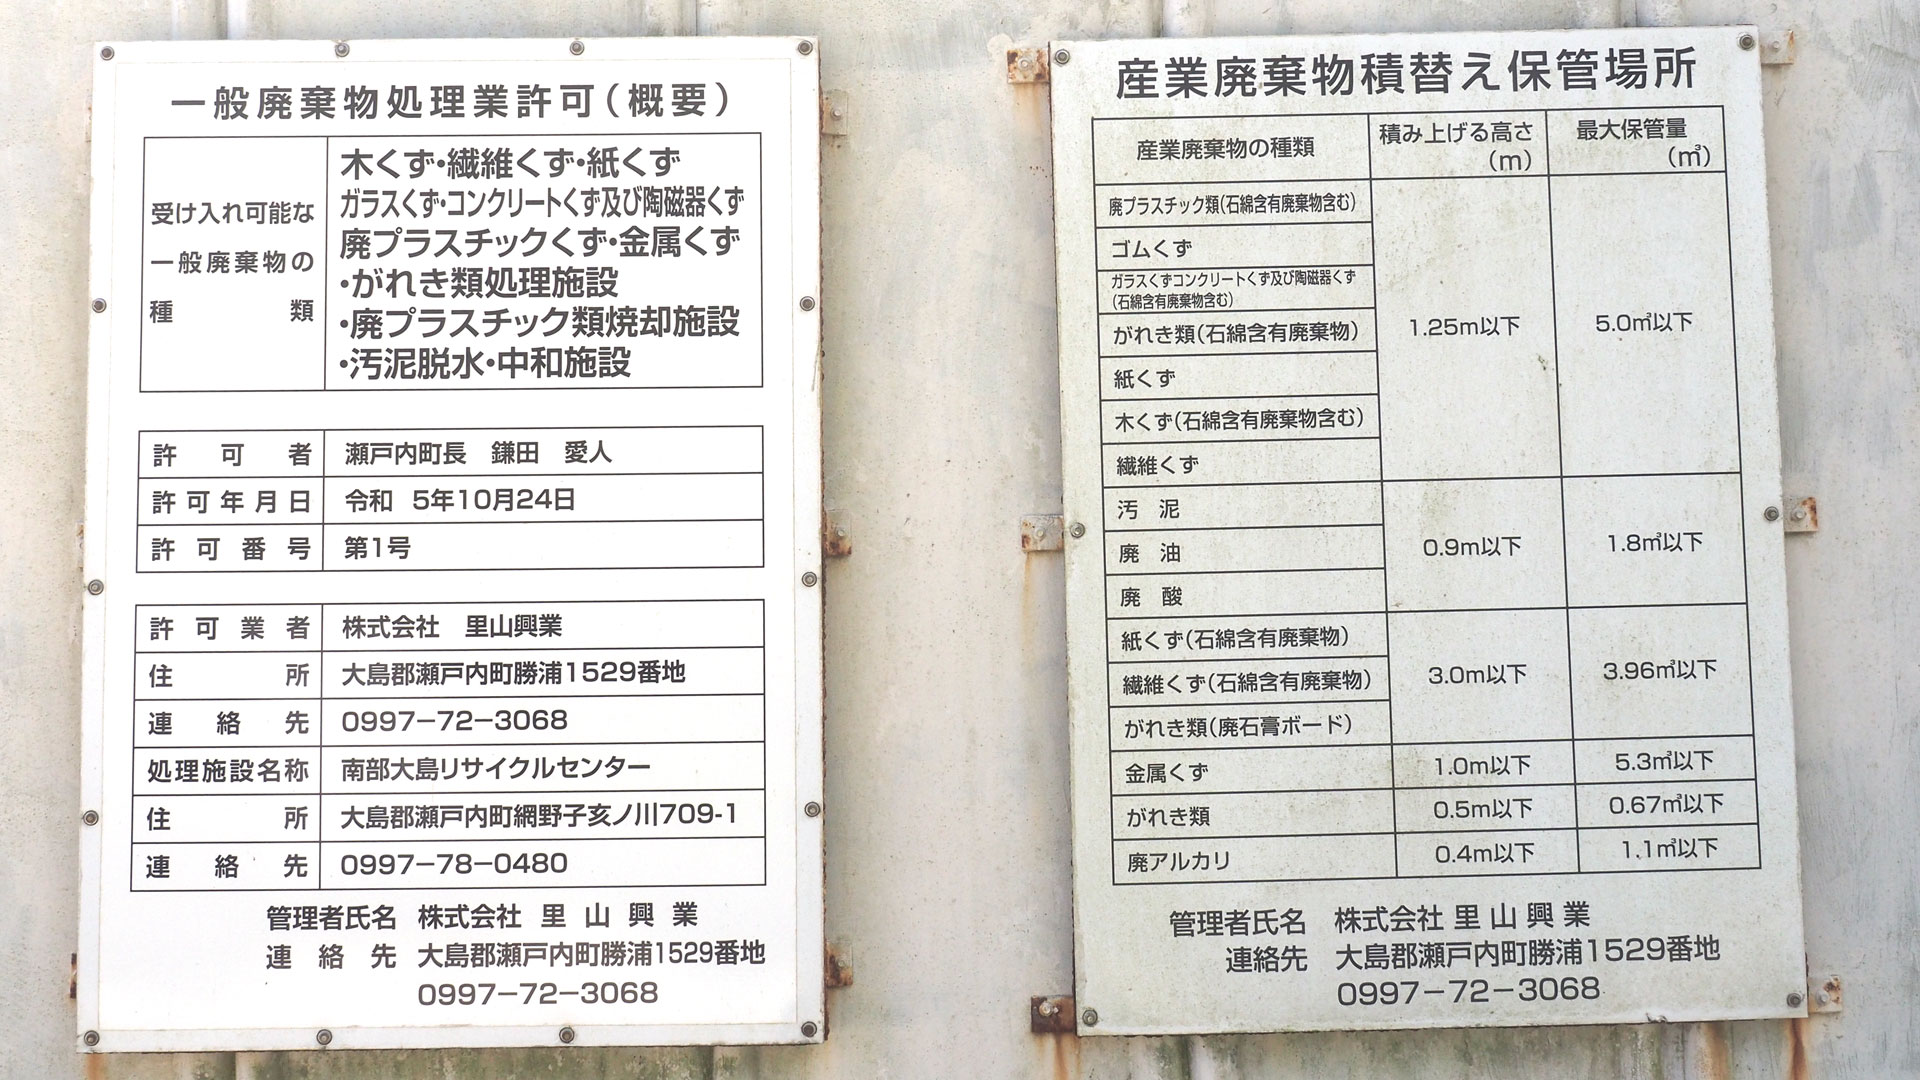 一般廃棄物処理業許可（概要）
受け入れ可能な
一般廃棄物の
種類
木くず・繊維くず・紙くず
ガラスくず・コンクリートくず及び陶磁器くず
廃プラスチックくず・金属くず
・がれき類処理施設
・廃プラスチック類焼却施設
・汚泥脱水・中和施設
許可者 瀬戸内町長 鎌田 愛人
許可年月日 令和 5年10月24日
許可番号 第1号
許可業者 株式会社 里山興業
住所 大島郡瀬戸内町勝浦1529番地
連絡先 0997−72−3068
処理施設名称 南部大島リサイクルセンター
住所 大島郡瀬戸内町網野子亥ノ川709-1
連絡先 0997−78−0480
管理者氏名 株式会社 里山興業
連絡先 大島郡瀬戸内町勝浦1529番地
0997−72−3068
産業廃棄物積替え保管場所
産業廃棄物の種類 積み上げる高さ（m） 最大保管量（㎥）
廃プラスチック類（石綿含有廃棄物含む）
ゴムくず
ガラスくずコンクリートくず及び陶磁器くず
（石綿含有廃棄物含む）
がれき類（石綿含有廃棄物） 1.25m以下 5.0㎥以下
紙くず
木くず（石綿含有廃棄物含む）
繊維くず
汚泥
廃油 0.9m以下 1.8㎥以下
廃酸
紙くず（石綿含有廃棄物）
繊維くず（石綿含有廃棄物） 3.0m以下 3.96㎥以下
がれき類（廃石膏ボード）
金属くず 1.0m以下 5.3㎥以下
がれき類 0.5m以下 0.67㎥以下
廃アルカリ 0.4m以下 1.1㎥以下
管理者氏名 株式会社 里山興業
連絡先 大島郡瀬戸内町勝浦1529番地
0997−72−3068